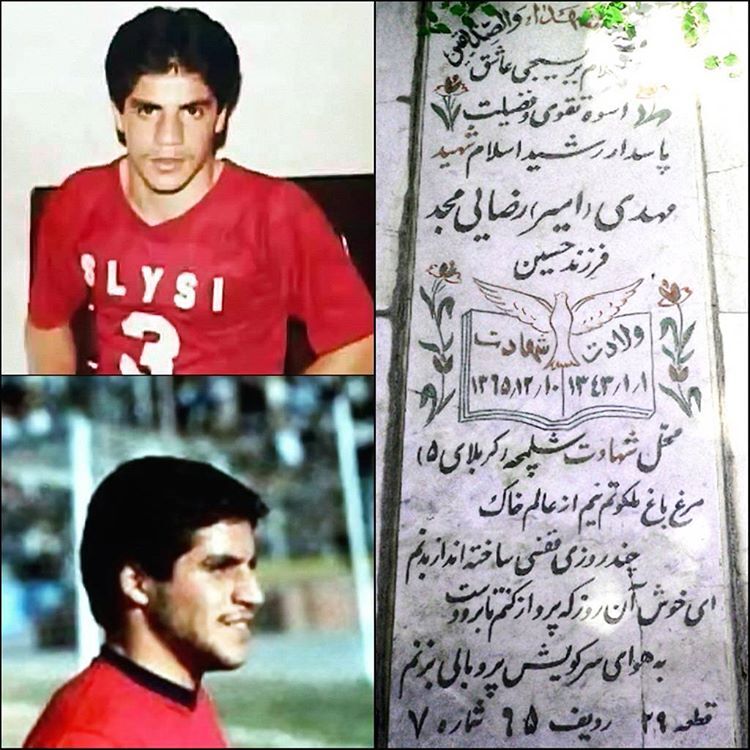 SLYSI
3
الشهداء والصدیقین
بسیجی عاشق
اسوه تقوی و فضیلت
پاسدار رشید اسلام شهید
مهدی (امیر) رضایی مجد
فرزند حسین
ولادت شهادت
۱۳۴۳٫۱٫۱ ۱۳۶۵٫۱۲٫۱۰
محل شهادت شلمچه (کربلای ۵)
مرغ باغ ملکوتم نیم از عالم خاک
چند روزی قفسی ساخته اند از بدنم
ای خوش آن روز که پرواز کنم تا بر دوست
به هوای سر کویش پر و بالی بزنم
قطعه ۲۹ ردیف ۶۵ شماره ۷